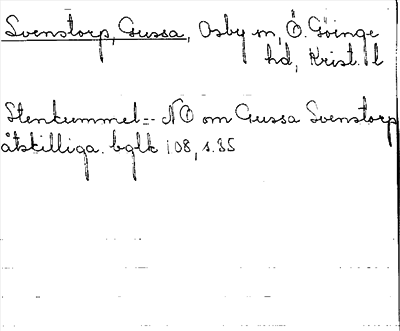 Svenstorp, Gussa, Osby sn, Ö. Göinge
hd, Krist. l
Stenkummel = NO om Gussa Svenstorp
åtskilliga. bglk 108, s. 85